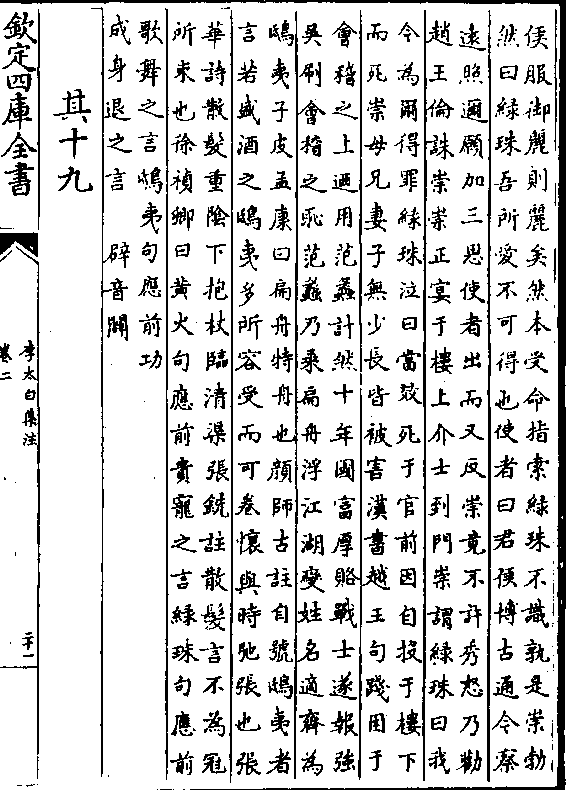 侯服御麗則麗矣然本受命指索綠珠不識孰是崇勃
然曰綠珠吾所愛不可得也使者曰君侯博古通今察
遠照邇願加三思使者出而又反崇竟不許秀怒乃勸
趙王倫誅崇崇正宴于樓上介士到門崇謂綠珠曰我
今為爾得罪綠珠泣曰當效死于官前因自投于樓下
而死崇母兄妻子無少長皆被害漢書越王句踐困于
會稽之上廼用范蠡計然十年國富厚賂戰士遂報強
吳刷會稽之恥范蠡乃乘扁舟浮江湖變姓名適齊為
鴟夷子皮孟康曰扁舟特舟也顔師古註自號鴟夷者
言若盛酒之鴟夷多所容受而可卷懷與時弛張也張
華詩散髮重陰下抱杖臨清渠張銑註散髮言不為冠
所束也徐禎卿曰黃犬句應前貴寵之言綠珠句應前
歌舞之言鴟夷句應前功
成身退之言 辟音闢
其十九
欽定四庫全書
李太白集注
卷二
二十一